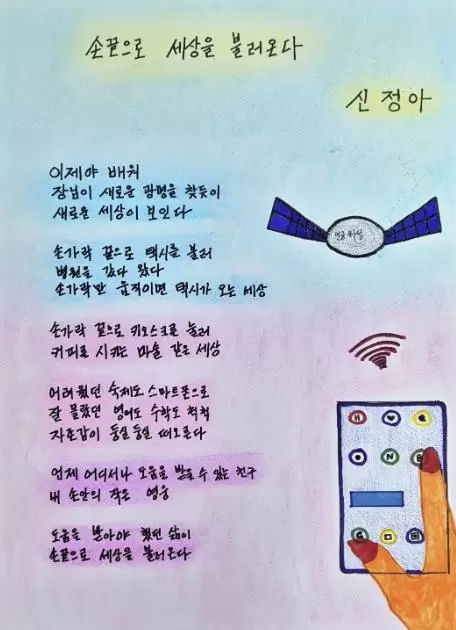 손끝으로 세상을 불러온다
신정아
이제야 배워
장님이 새로운 광명을 찾듯이
새로운 세상이 보인다
손가락 끝으로 택시를 불러
병원을 갔다 왔다
손가락만 움직이면 택시가 오는 세상
손가락 끝으로 키오스크를 눌러
커피를 시키는 마술 같은 세상
어려웠던 숙제도 스마트폰으로
잘 몰랐던 영어도 수학도 척척
자존감이 둥실둥실 떠오른다
언제 어디서나 도움을 받을 수 있는 친구
내 손안의 작은 영웅
도움을 받아야 했던 삶이
손끝으로 세상을 불러온다
인공위성
H
N